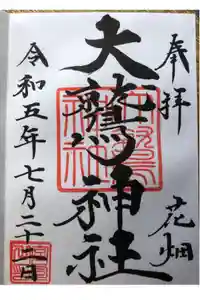 奉拝
花畑
大鷲神社
令和五年七月二十二日